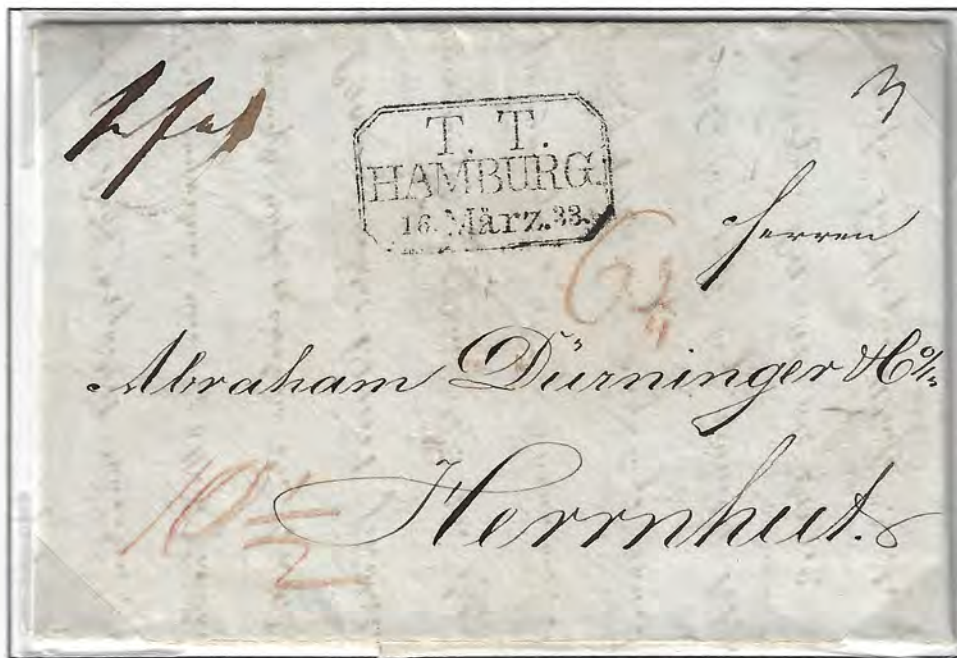 T. T.
HAMBURG.
16. März. 33.
Herren
Abraham Dürninger & Co
Herrnhut.
10 1/2